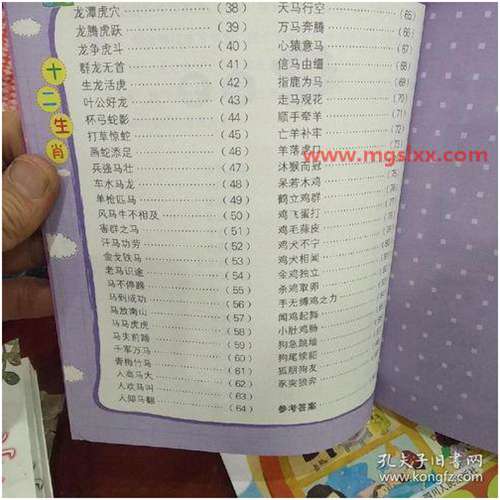 十二生肖
龙潭虎穴 (38)
龙腾虎跃 (39)
龙争虎斗 (40)
群龙无首 (41)
生龙活虎 (42)
叶公好龙 (43)
杯弓蛇影 (44)
打草惊蛇 (45)
画蛇添足 (46)
兵强马壮 (47)
车水马龙 (48)
单枪匹马 (49)
风马牛不相及 (50)
害群之马 (51)
汗马功劳 (52)
金戈铁马 (53)
老马识途 (54)
马不停蹄 (55)
马到成功 (56)
马放南山 (57)
马马虎虎 (58)
马失前蹄 (59)
千军万马 (60)
青梅竹马 (61)
人高马大 (62)
人欢马叫 (63)
人仰马翻 (64)
天马行空 (65)
万马奔腾 (66)
心猿意马 (67)
信马由缰 (68)
指鹿为马 (69)
走马观花 (70)
顺手牵羊 (71)
亡羊补牢 (72)
羊落虎口
www.mgslxx.com
沐猴而冠
呆若木鸡
鹤立鸡群
鸡飞蛋打
鸡毛蒜皮
鸡犬不宁
鸡犬相闻
金鸡独立
杀鸡取卵
手无缚鸡之力
闻鸡起舞
小肚鸡肠
狗急跳墙
狗尾续貂
狐朋狗友
豕突狼奔
参考答案
孔夫子旧书网